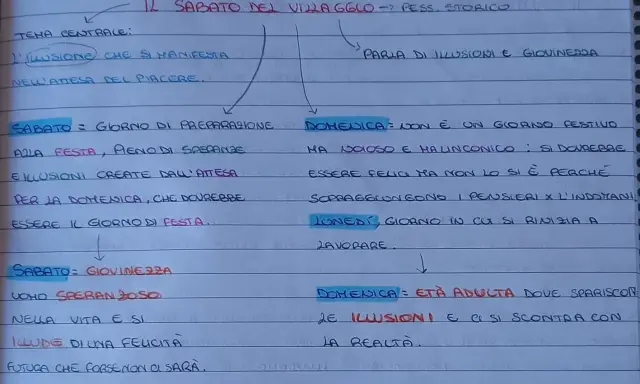 IL SABATO DEL VILLAGGIO → PESS. STORICO
TEMA CENTRALE:
L'ILLUSIONE CHE SI MANIFESTA
NELL'ATTESA DEL PIACERE.
PARLA DI ILLUSIONI E GIOVINEZZA
SABATO = GIORNO DI PREPARAZIONE
ALLA FESTA, PIENO DI SPERANZE
E ILLUSIONI CREATE DALL'ATTESA
PER LA DOMENICA, CHE DOVREBBE
ESSERE IL GIORNO DI FESTA.
SABATO = GIOVINEZZA
UOMO SPERANZOSO
NELLA VITA E SI
ILLUDE DI UNA FELICITÀ
FUTURA CHE FORSE NON CI SARÀ.
DOMENICA = NON È UN GIORNO FESTIVO
MA NOIOSO E MALINCONICO: SI DOVREBBE
ESSERE FELICI MA NON LO SI È PERCHÉ
SOPRAGGIUNGONO I PENSIERI X L'INDOMANI,
LUNEDÌ, GIORNO IN CUI SI RINIZIA A
LAVORARE.
DOMENICA = ETÀ ADULTA DOVE SPARISCON
LE ILLUSIONI E CI SI SCONTRA CON
LA REALTÀ.